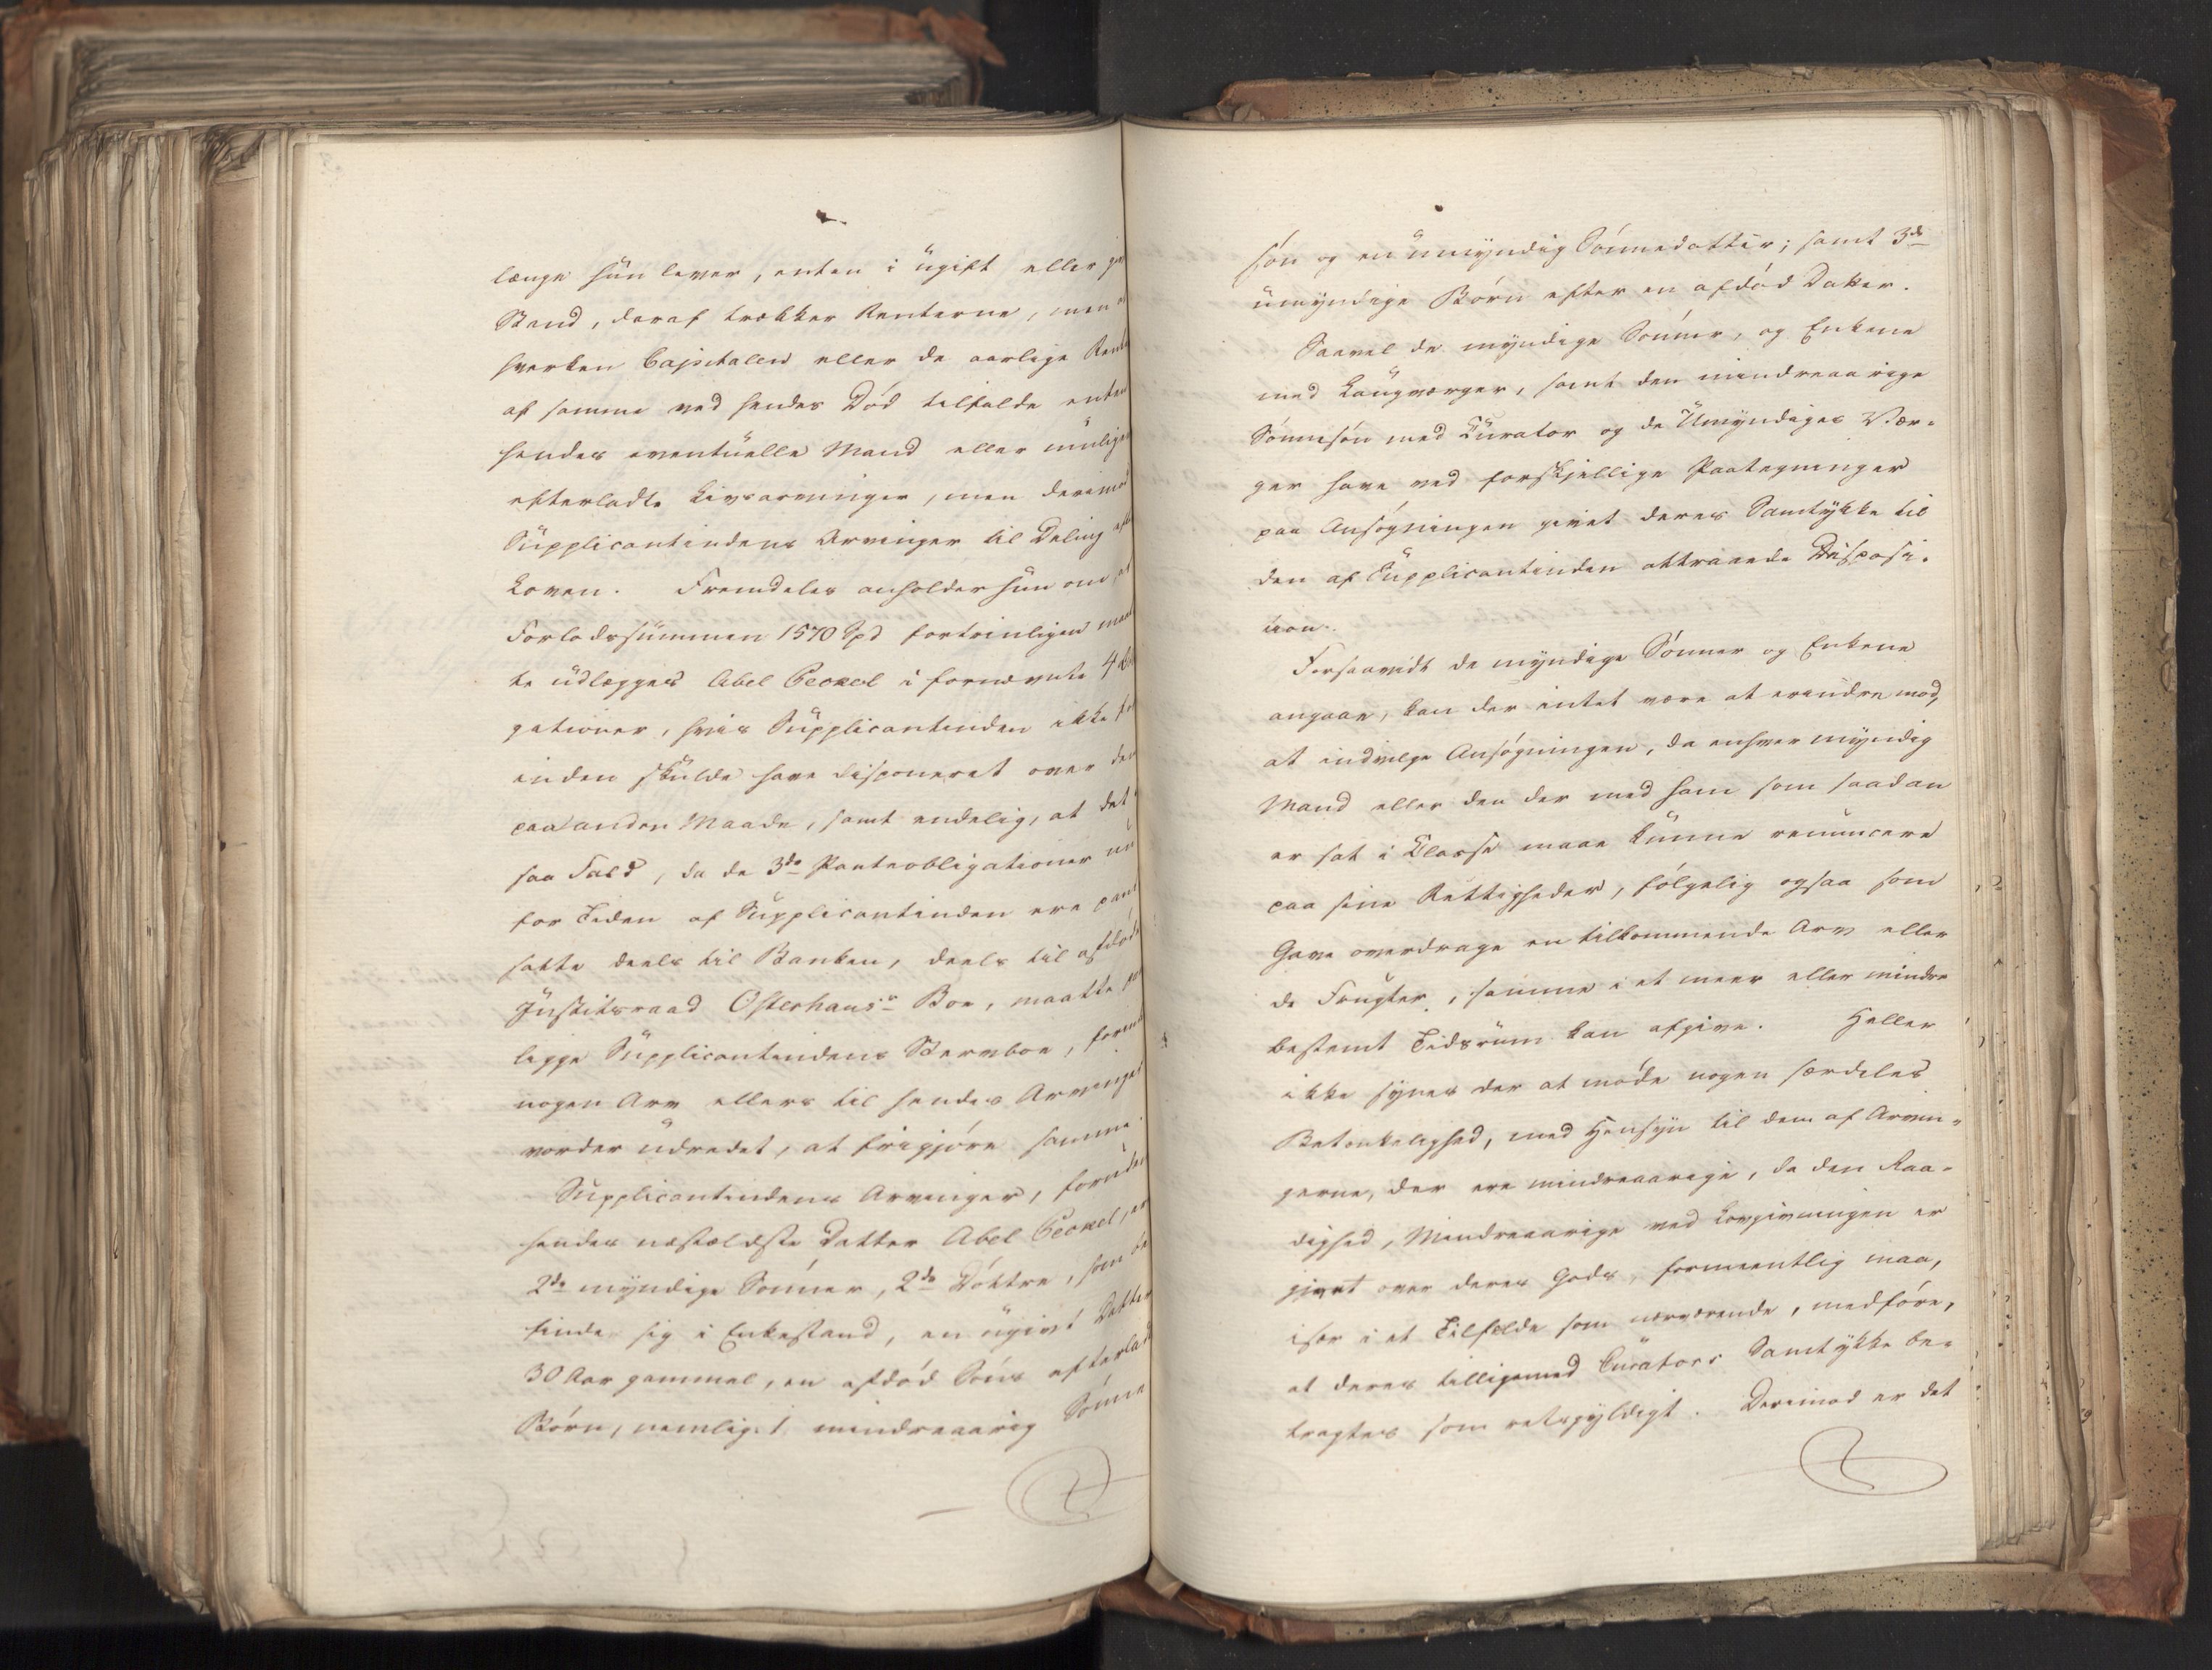 længe hun lever, enten i ugift eller gift
Stand, deraf trækker Renterne, men at
hverken Capitalen eller de aarlige Renter
af samme ved hendes Død tilfalde enten
hendes eventuelle Mand eller mulige
efterladte Livsarvinger, men derimod
Supplicantindens Arvinger til Deling efter
Loven. Fremdeles anholder hun om, at
Forlodssummen 1570 Spd fortrinligen maat
te udlægges Abel i fornævnte 4 Obli
gationer, hvis Supplicantinden ikke for
inden skulde have disponeret over dem
paa anden Maade, samt endelig, at det i
saa Fald, da de 3de Panteobligationer nu
for Tiden af Supplicantinden ere pant
satte deels til Banken, deels til afdøde
Justitsraad Osterhaus's Boe, maatte paa
ligge Supplicantindens Stervboe, forend
nogen Arv ellers til hendes Arvinger
vorder udredet, at frigjøre samme.
Supplicantindens Arvinger, foruden
hendes næstældste Datter Abel , er
2de myndige Sønner, 2de Døttre, som be
finde sig i Enkestand, en ugivt Datter
30 Aar gammel, en afdød Søns efterladte
Børn, nemlig: 1 mindreaarig Sønne
søn og en umyndig Sønnedatter; samt 3de
umyndige Børn efter en afdød Datter.
Saavel de myndige Sønner, og Enkene
med Laugværger, samt den mindreaarige
Sønnesøn med Curator og de Umyndiges Vær-
ger have ved forskjellige Paategninger
paa Ansøgningen givet deres Samtykke til
den af Supplicantinden attraaede Disposi-
tion.
Forsaavidt de myndige Sønner og Enkene
angaae, kan der intet være at erindre mod,
at indvilge Ansøgningen, da enhver myndig
Mand eller den der med ham som saadan
er sat i Classe maae kunne renuncere
paa sine Rettigheder, følgelig ogsaa som
Gave overdrage en tilkommende Arv eller
de Frugter, samme i et meer eller mindre
bestemt Tidsrum kan afgive. Heller
ikke synes der at møde nogen særdeles
Betænkelighed, med Hensyn til dem af Arvin-
gerne, der ere mindreaarige, da den Raa-
dighed, Mindreaarige ved Lovgivningen er
givet over deres Gods, formeentlig maa,
især i et Tilfælde som nærværende, medføre,
at deres tilligemed Curators Samtykke be-
tragtes som retsgyldigt. Derimod er det